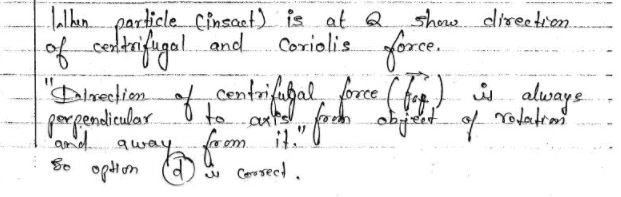 When particle (insact) is at Q show direction
of centrifugal and Coriolis force.
"Direction of centrifugal force (fcf) is always
perpendicular to axis from object of rotation
and away from it."
So option (d) is correct.